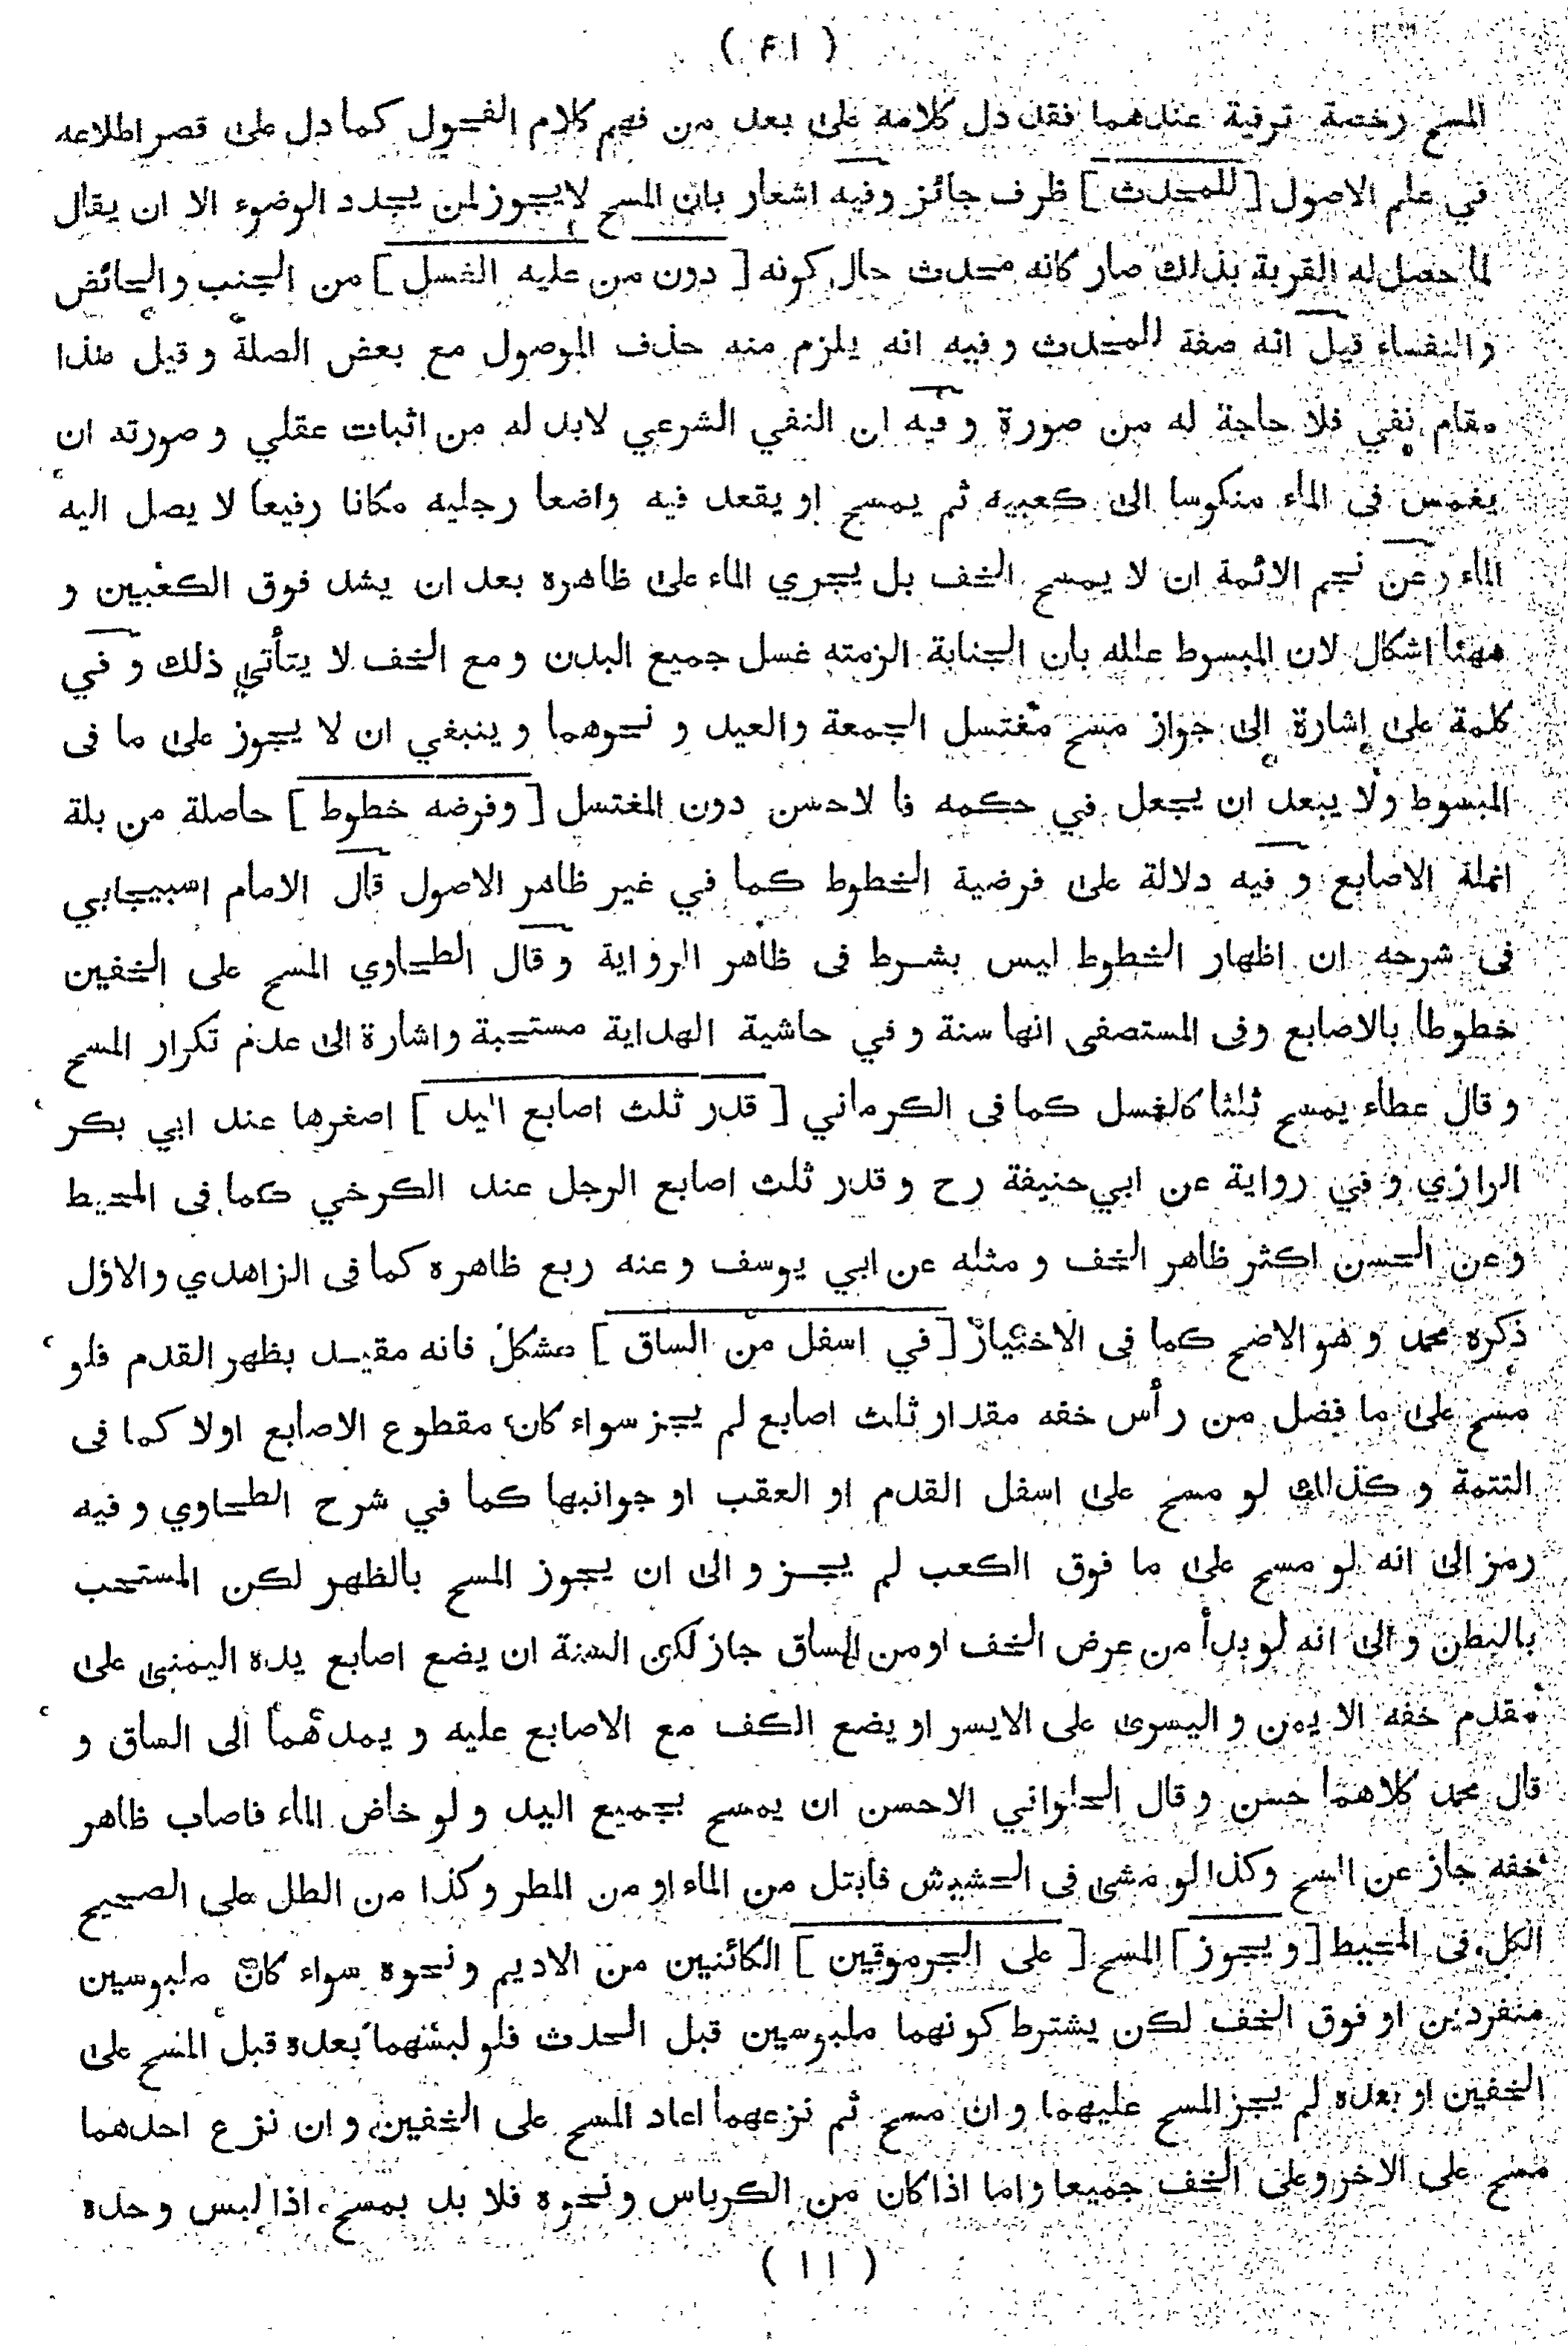 ( ٤١ )
المسح رخصة ترفية عندهما فقد دل كلامه على بعد من فهم كلام الفحول كما دل على قصر اطلاعه
في علم الاصول [ للمحدث ] ظرف جائز وفيه اشعار بان المسح لايجوز لمن يجدد الوضوء الا ان يقال
لما حصل له القربة بذلك صار كانه محدث حال كونه [ دون من عليه الغسل ] من الجنب والحائض
والنفساء قيل انه صفة للمحدث وفيه انه يلزم منه حذف الموصول مع بعض الصلة وقيل هذا
مقام نفي فلا حاجة له من صورة وفيه ان النفي الشرعي لابد له من اثبات عقلي وصورته ان
يغمس فى الماء منكوسا الى كعبيه ثم يمسح او يقعد فيه واضعا رجليه مكانا رفيعا لا يصل اليه
الماء وعن نجم الائمة ان لا يمسح الخف بل يجري الماء على ظاهره بعد ان يشد فوق الكعبين و
ههنا اشكال لان المبسوط علله بان الجنابة الزمته غسل جميع البدن ومع الخف لا يتأتي ذلك وفي
كلمة على اشارة الى جواز مسح مغتسل الجمعة والعيد ونحوهما وينبغي ان لا يجوز على ما فى
المبسوط ولا يبعد ان يجعل في حكمه فا لاحسن دون المغتسل [ وفرضه خطوط ] حاصلة من بلة
انملة الاصابع وفيه دلالة على فرضية الخطوط كما في غير ظاهر الاصول قال الامام اسبيجابي
فى شرحه ان اظهار الخطوط ليس بشرط فى ظاهر الرواية وقال الطحاوي المسح على الخفين
خطوطا بالاصابع وفى المستصفى انها سنة وفي حاشية الهداية مستحبة واشارة الى عدم تكرار المسح
وقال عطاء يمسح ثلثا كالغسل كما فى الكرماني [ قدر ثلث اصابع اليد ] اصغرها عند ابي بكر
الرازي وفي رواية عن ابي حنيفة رح وقدر ثلث اصابع الرجل عند الكرخي كما فى المحيط
وعن الحسن اكثر ظاهر الخف ومثله عن ابي يوسف وعنه ربع ظاهره كما فى الزاهدي والاول
ذكره محمد وهو الاصح كما فى الاختيار [ في اسفل من الساق ] مشكل فانه مقيد بظهر القدم فلو
مسح على ما فضل من رأس خفه مقدار ثلث اصابع لم يجز سواء كان مقطوع الاصابع اولا كما فى
التتمة وكذلك لو مسح على اسفل القدم او العقب او جوانبها كما في شرح الطحاوي وفيه
رمز الى انه لو مسح على ما فوق الكعب لم يجز والى ان يجوز المسح بالظهر لكن المستحب
بالبطن والى انه لو بدأ من عرض الخف او من الساق جاز لكن السنة ان يضع اصابع يده اليمنى على
مقدم خفه الا يمن واليسرى على الايسر او يضع الكف مع الاصابع عليه و يمدهما الى الساق و
قال محمد كلاهما حسن وقال الحلواني الاحسن ان يمسح بجميع اليد ولو خاض الماء فاصاب ظاهر
خفه جاز عن المسح وكذا لو مشى فى الحشيش فابتل من الماء او من المطر وكذا من الطل على الصحيح
الكل فى المحيط [ ويجوز ] المسح [ على الجرموقين ] الكائنين من الاديم ونحوه سواء كان ملبوسين
منفردين او فوق الخف لكن يشترط كونهما ملبوسين قبل الحدث فلو لبسهما بعده قبل المسح على
الخفين او بعده لم يجز المسح عليهما وان مسح ثم نزعهما اعاد المسح على الخفين وان نزع احدهما
مسح على الاخر وعلى الخف جميعا واما اذا كان من الكرباس ونحوه فلا بد بمسح اذا لبس وحده
( ١١ )